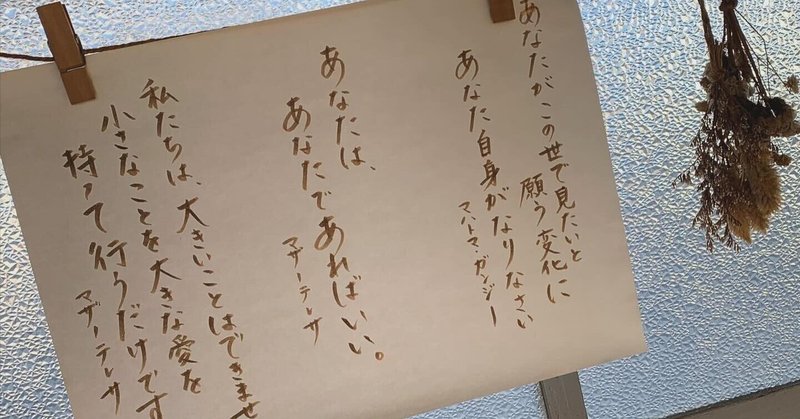 あなたがこの世で見たいと
願う変化に
あなた自身がなりなさい
マハトマ・ガンジー
あなたは、
あなたであればいい。
マザーテレサ
私たちは、大きいことはできませ
小さなことを大きな愛を
持って行うだけです
マザーテレサ